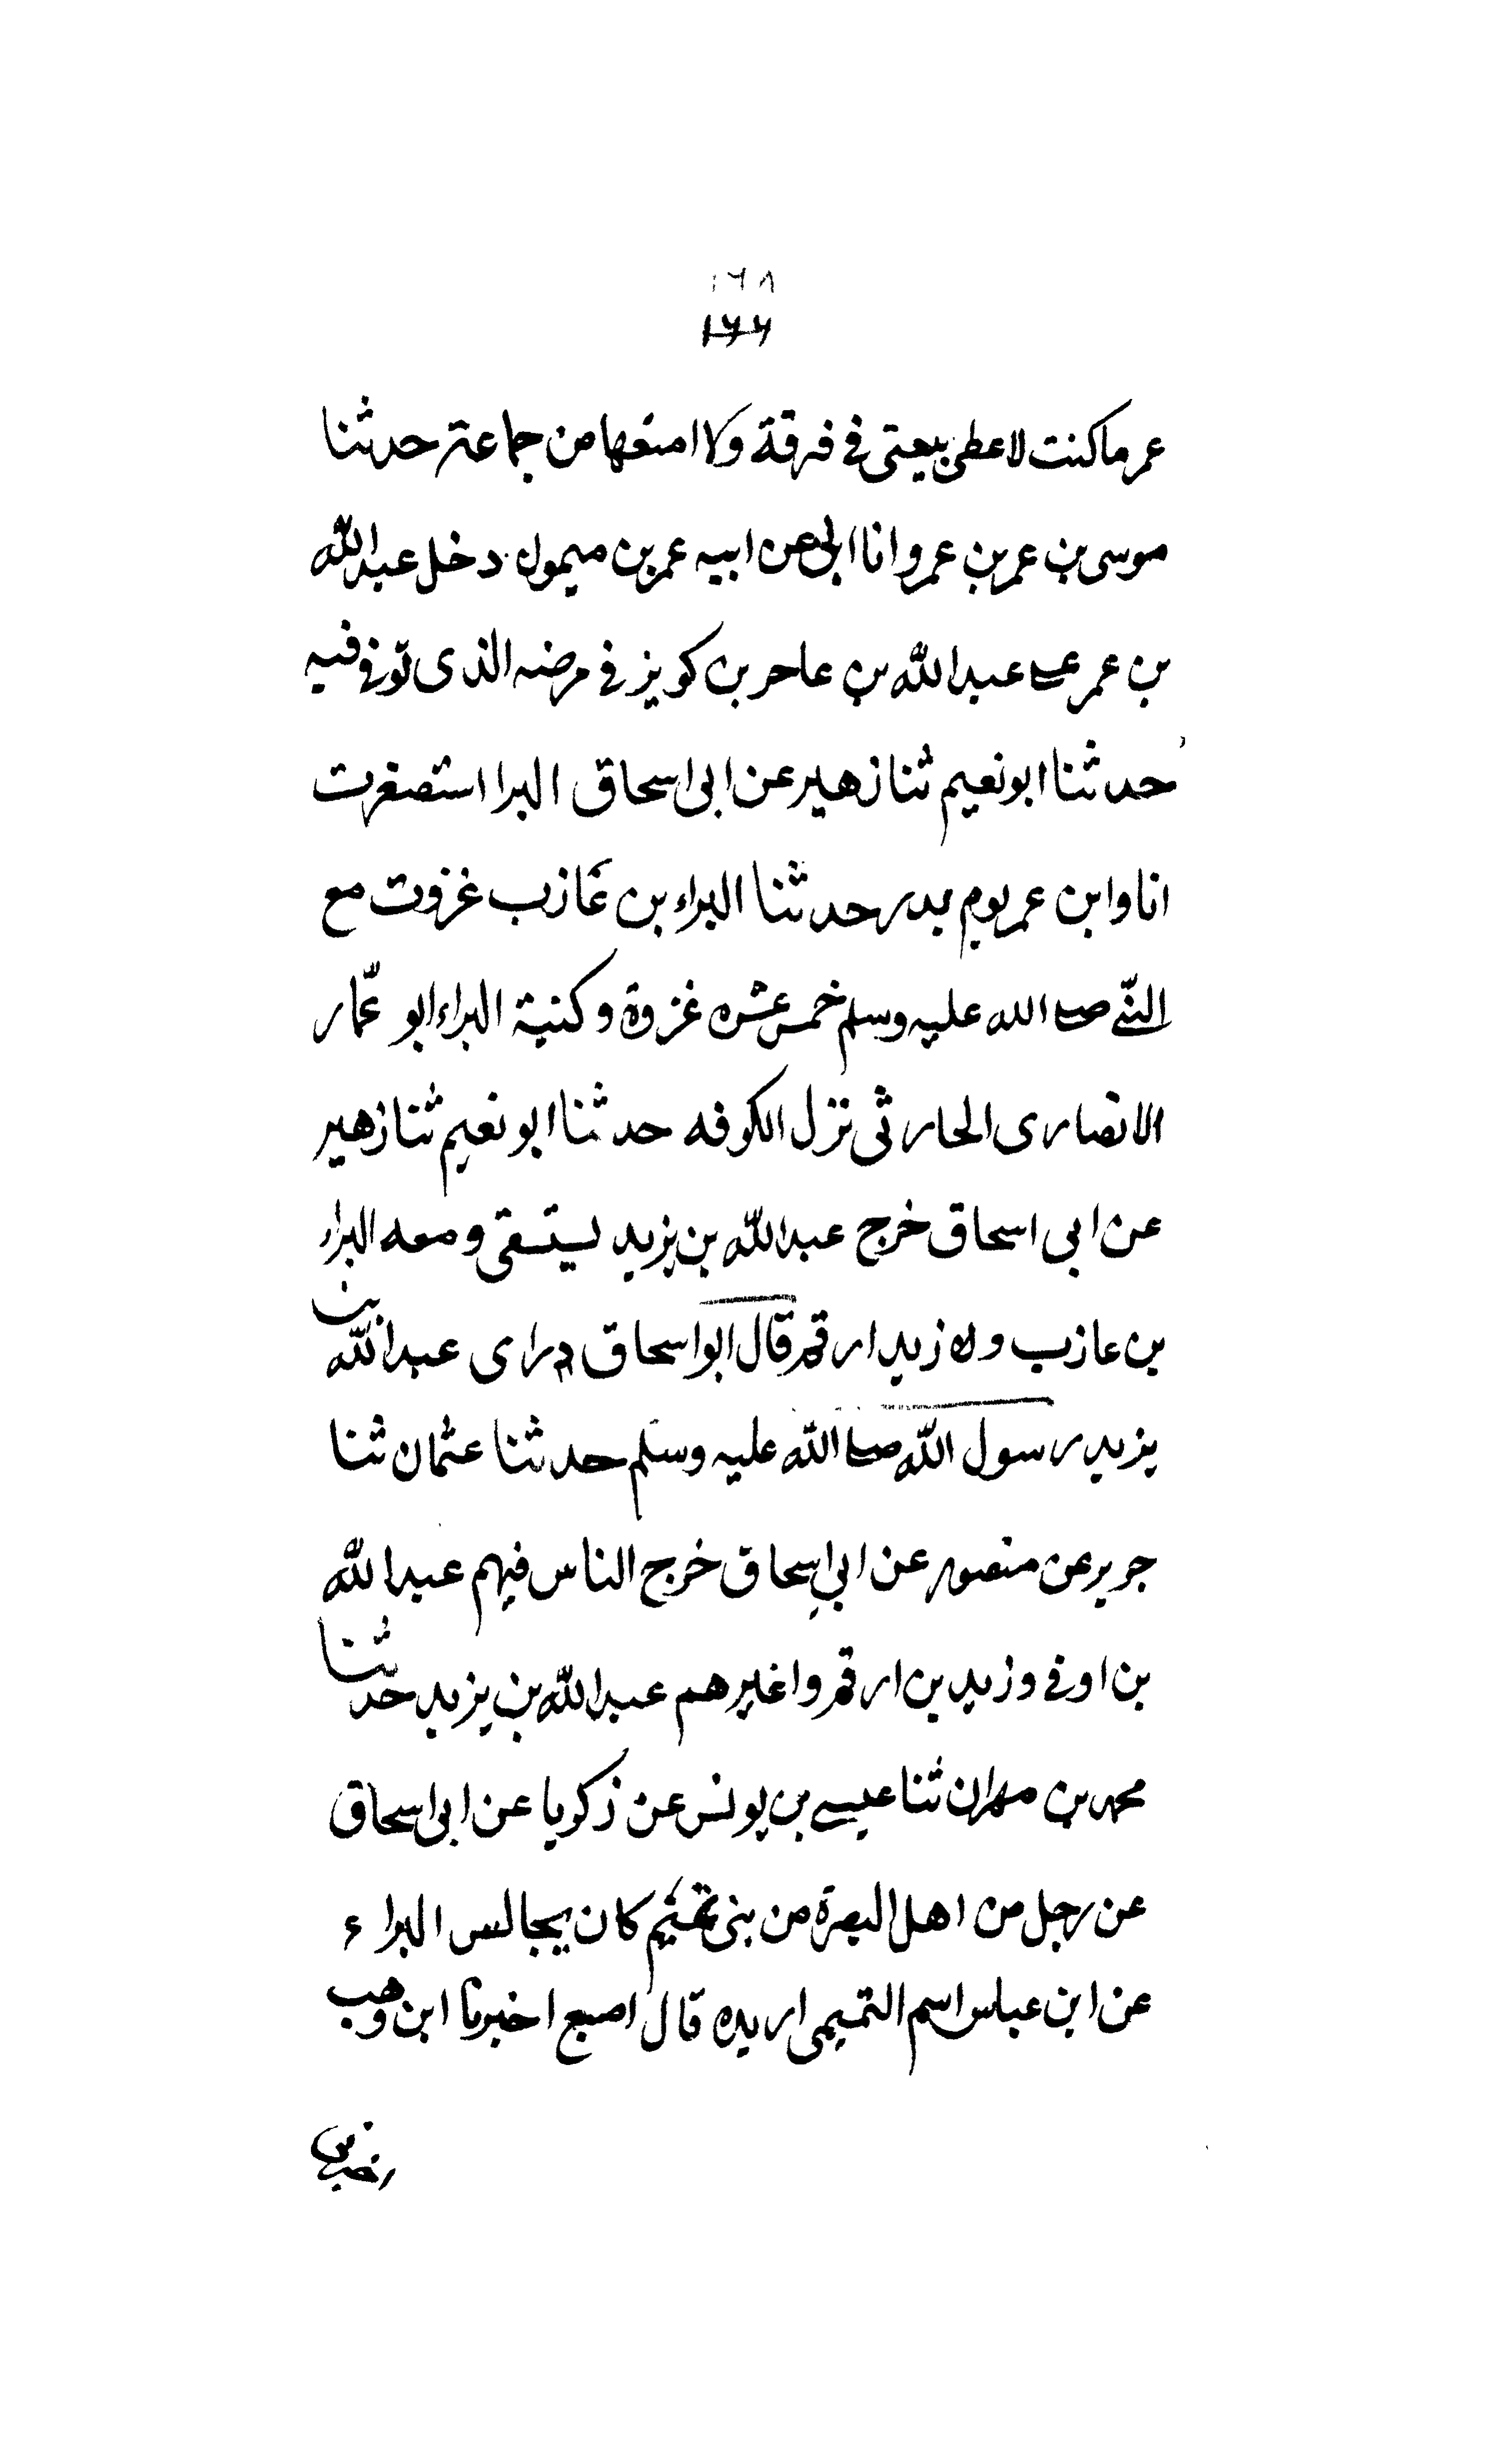 ١٦٨
١٦٦
عمر ما كنت لاعطى بيعتى فى فرقة ولا امنعها من جماعة حدثنا
موسى بن عمر بن عمرو انا ابى عن ابيه عمر بن ميمون دخل عبد الله
بن عمر على عبد الله بن عامر بن كويز فى مرضه الذى توفى فيه
حدثنا ابو نعيم ثنا زهير عن ابى اسحاق البرا استصغرت
انا وابن عمر يوم بدر حدثنا البراء بن عازب غزوت مع
النبى صلى الله عليه وسلم خمس عشره غزوة وكنية البراء ابو عمار
الانصارى الحارثى نزل الكوفه حدثنا ابو نعيم ثنا زهير
عن ابى اسحاق خرج عبد الله بن يزيد يستسقى ومعه البراء
بن عازب و زيد ارقم قال ابو اسحاق راى عبد الله بن
يزيد رسول الله صلى الله عليه وسلم حدثنا عثمان ثنا
جرير عن منصور عن ابى اسحاق خرج الناس فيهم عبد الله
بن اوفى وزيد بن ارقم واغيرهم عبد الله بن يزيد حدثنا
محمد بن مهران ثنا عيسى بن يونس عن زكريا عن ابى اسحاق
عن رجل من اهل البصرة من بنى تميم كان يجالس البراء
عن ابن عباس اسم التميمى اربده قال اصبع اخبرنا ابن وهب